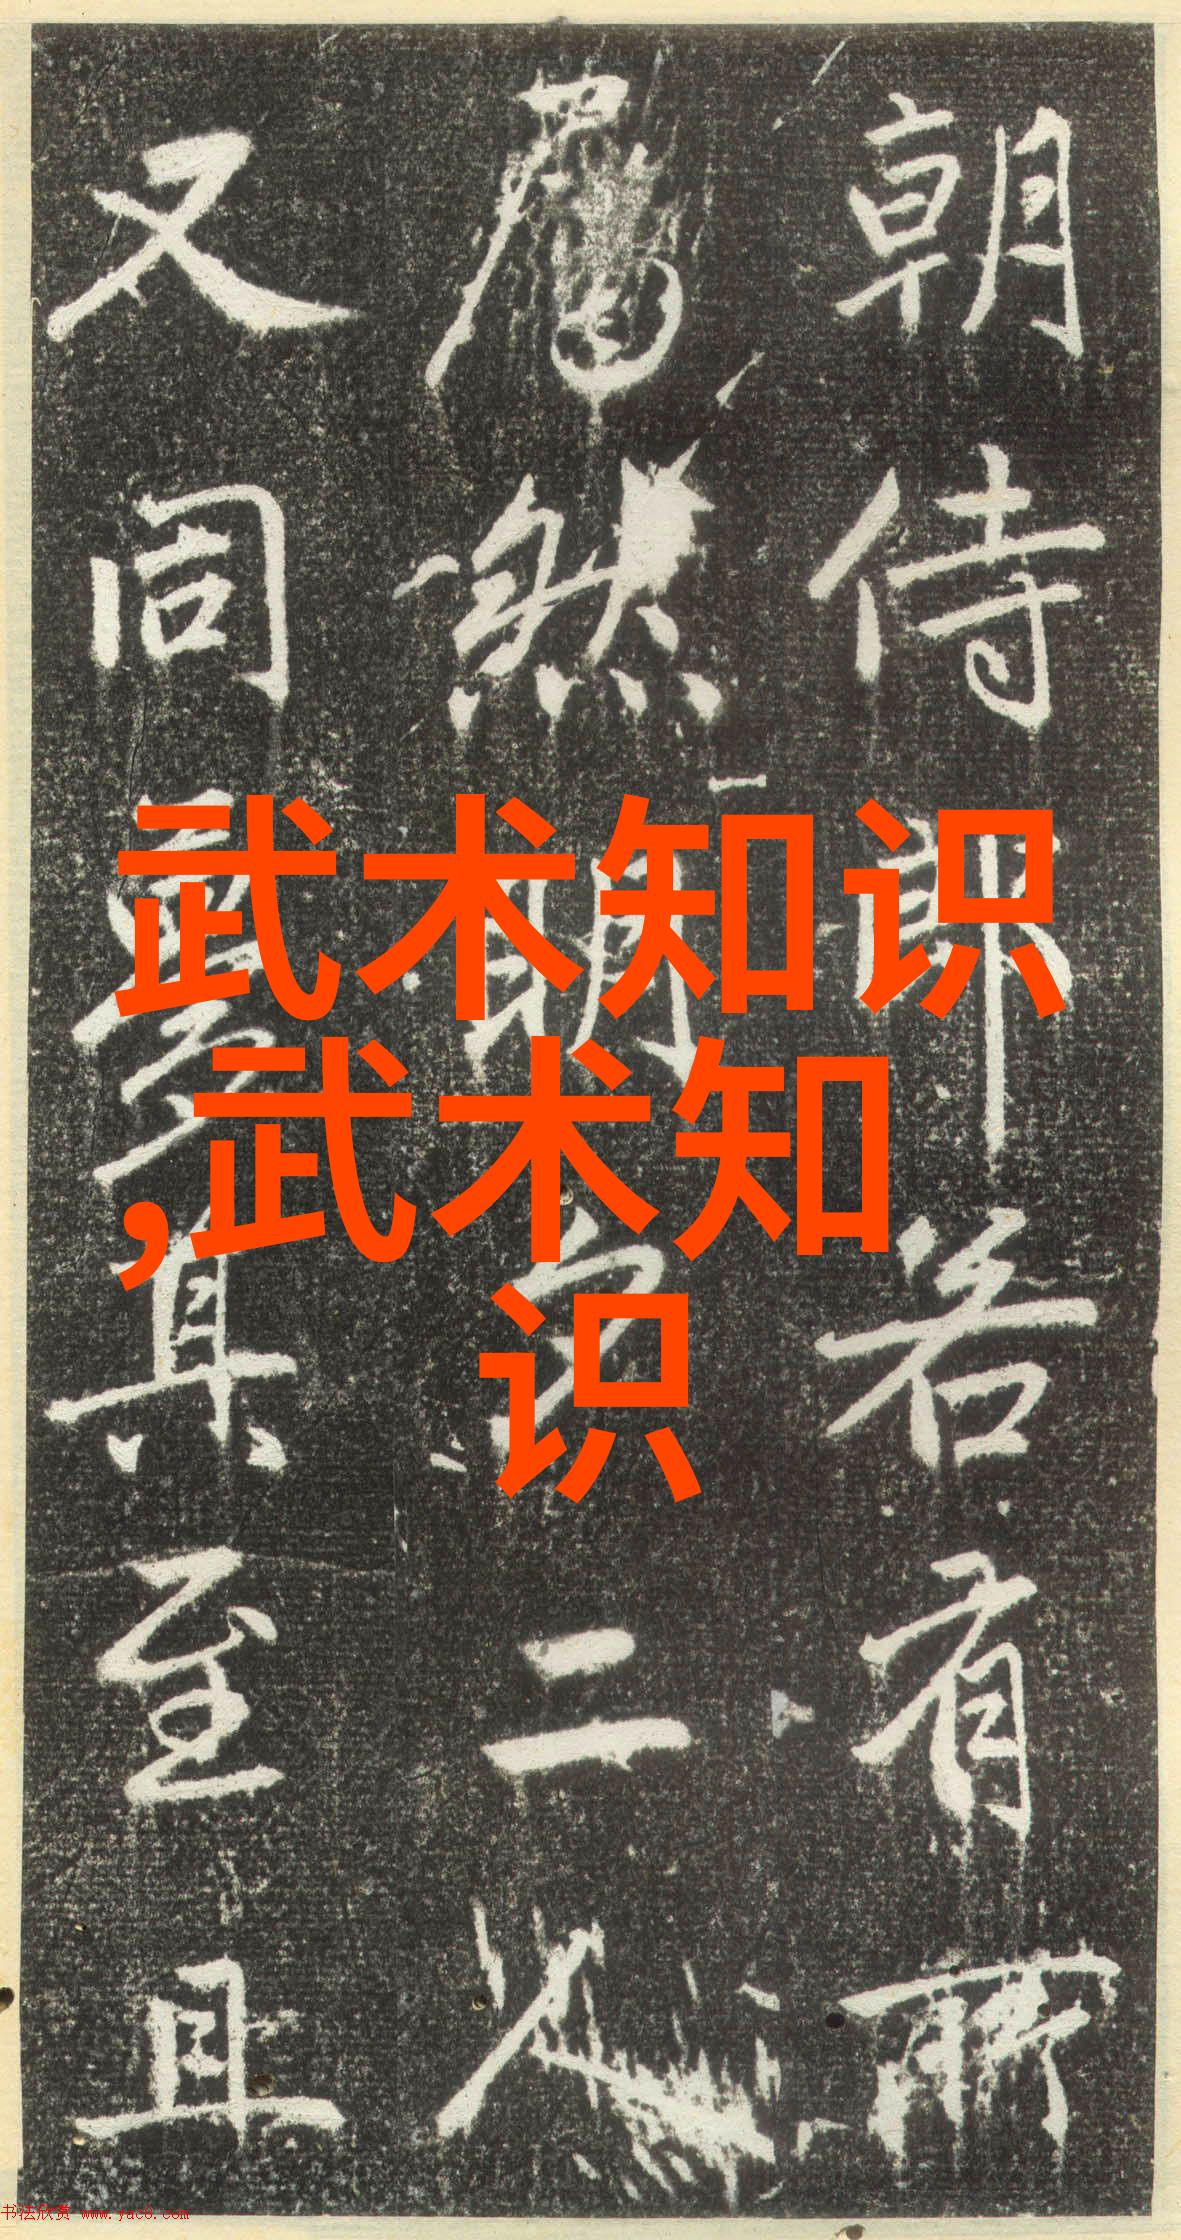 朝侍郎若有所
屬然明
二人
又同
真至且
武术知识
,武术知
识
书法欣赏 www.yac8.com